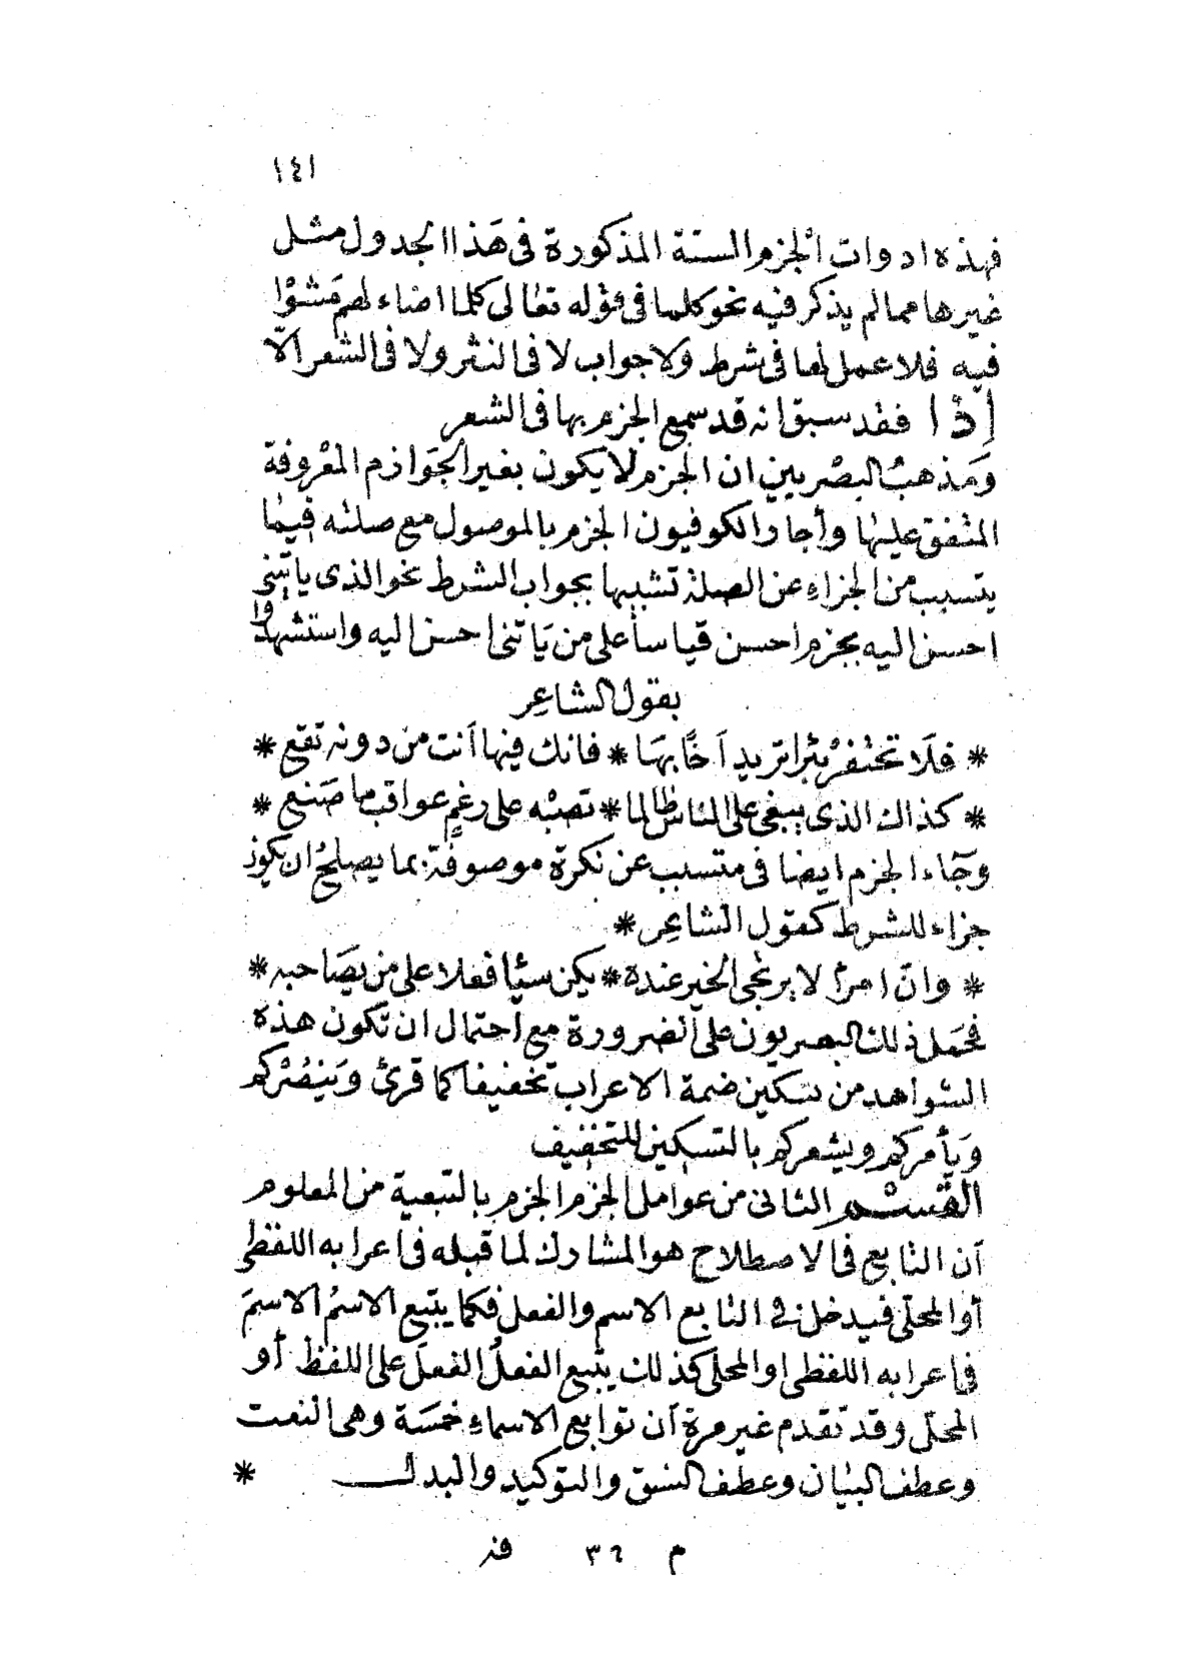 ١٤١
فهذه ادوات الْجزم الستة المذكورة فى هَذا الجدول مثل
غيرها مما لم يذكر فيه نحو كلما فى قوله تعالى كلما اضاء لهم مَشَوْا
فيه فلا عمل لها فى شرط ولا جواب لا فى النثر ولا فى الشعر الّا
إذْا فقد سبق انه قد سمع الجزم بها فى الشعر
وَمذهبُ البصْريين ان الجزم لا يكون بغير الجَوازم المعْروفة
المتفق عليها وأجاز الكوفيون الجزم بالموصول مع صلته فيما
يتسبب من الجزاءِ عن الصلة تشبيها بجواب الشرط نحو الذى ياتينى
احسن اليه بجزم احسن قياسًا على من يَاتنى احسن اليه واستشهدوا
بقول الشاعِر
* فلَا تحْفرْ بئرا تريد اَخًا بهَا * فانك فيها اَنت من دونه تقع *
* كذاك الذى يبغى على الناس ظالما * تصبْه على رغمٍ عواقب ما صَنع *
وجَاء الجزم ايضا فى متسبب عن نكرة موصوفة بما يصلحُ ان يكون
جزاء للشرط كقول الشاعِر *
* وانّ امرأ لا يرتجى الخير عنده * يكن سيئا فعلا على من يصَاحبه *
فحَمل ذلك البصريون على الضرورة مع احتمال ان تكون هذه
الشواهد من تسكين ضمة الاعراب تخفيفا كما قرئ وَينصُرْكم
وَيأمركم ويشعركم بالتسكين للتخفيف
القسْم الثانى من عوامل الجزم الجزم بالتبعية من المعلوم
اَن التابع فى الاصطلاح هو المشارك لما قبله فى اعرابه اللفظى
أو المحلّى فيدخل فى التابع الاسم والفعل فكما يتبع الاسمُ الاسمَ
فى اعرابه اللفظى او المحلى كذلك يتبع الفعلُ الفعلَ على اللفظ أو
المحلّى وقد تقدم غير مرة اَن توابع الاسماءِ خمسَة وهى النعت
وعطف البيان وعطف النسق والتوكيد والبدل *
م ٣٦ فد